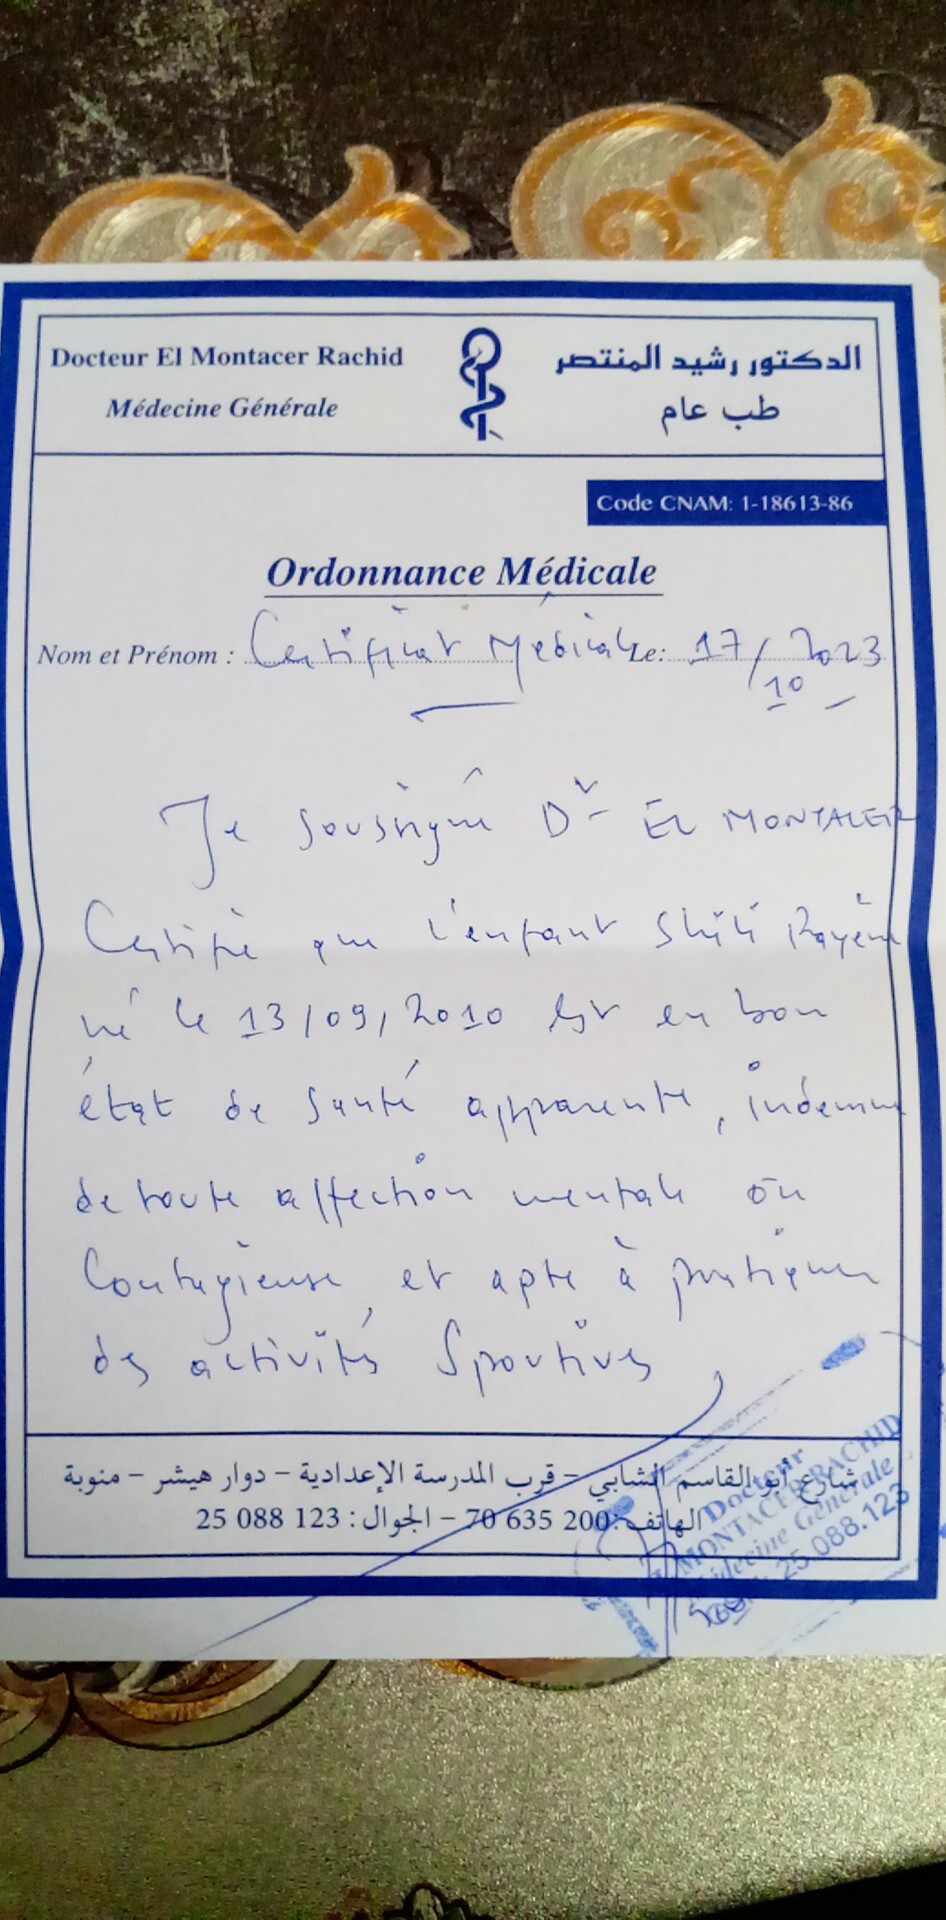 Docteur El Montacer Rachid
Médecine Générale
الدكتور رشيد المنتصر
طب عام
Code CNAM: 1-18613-86
Ordonnance Médicale
Nom et Prénom : Certificat Médical Le: 17/10/2023
Je soussigné Dr EL MONTACER
Certifie que l'enfant Shili Rayène
né le 13/09/2010 est en bon
état de santé apparente, indemne
de toute affection mentale ou
Contagieuse, et apte à pratiquer
des activités Sportives
شارع أبو القاسم الشابي - قرب المدرسة الإعدادية - دوار هيشر - منوبة
الهاتف: 70 635 200 - الجوال: 25 088 123
Docteur
MONTACER RACHID
Médecine Générale
25.088.123